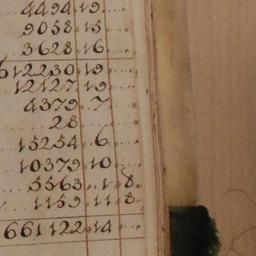 4494.19.
9058.15
3628.16
612230.19.
12127.19
4379.7
28
15254.6.
10379.10.
5563.1.8.
1159.11.8.
661122.14